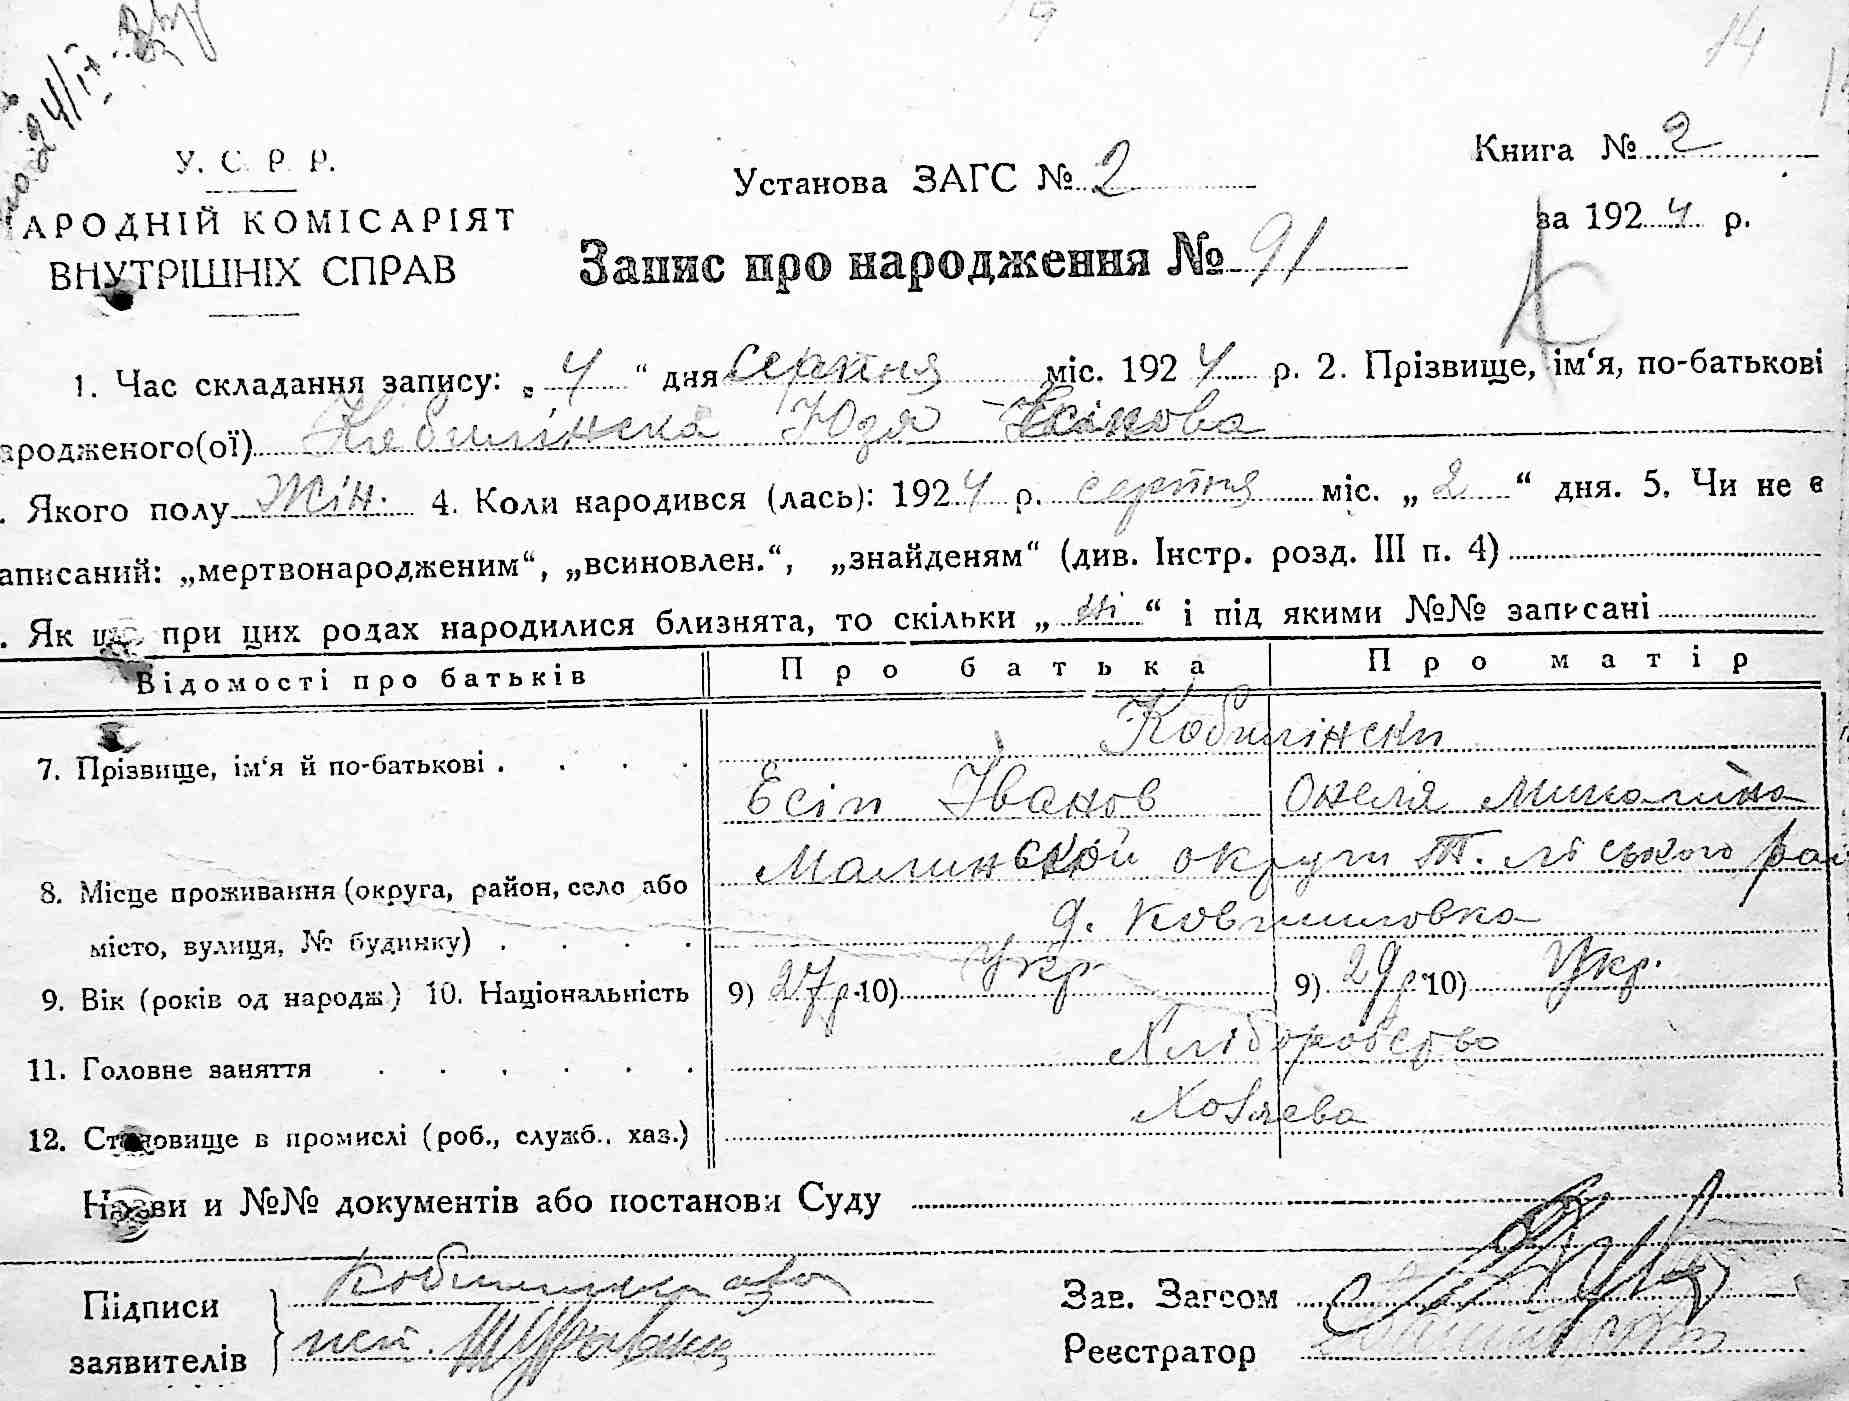 14
У. С. Р. Р.
АРОДНІЙ КОМІСАРІЯТ
ВНУТРІШНІХ СПРАВ
Установа ЗАГС № 2
Книга № 2
за 1924 р.
Запис про народження № 91
1. Час складання запису: „ 4 “ дня серпня міс. 1924 р. 2. Прізвище, ім‘я, по-батькові
ародженого(ої) Кобилінска Юзя Есіпова
. Якого полу Жін. 4. Коли народився (лась): 1924 р. серпня міс. „ 2 “ дня. 5. Чи не є
аписаний: „мертвонародженим“, „всиновлен.“, „знайденям“ (див. Інстр. розд. III п. 4)
. Як що при цих родах народилися близнята, то скільки „ ні “ і під якими №№ записані
Відомості про батьків Про батька Про матір
7. Прізвище, ім‘я й по-батькові . . . .
Кобилінски
Есіп Іванов Онеля Миколаївна
8. Місце проживання (округа, район, село або
місто, вулиця, № будинку) . . . .
Малинской округи
9. Вік (років од народж.) 10. Національність 9) 27 р. 10) Укр 9) 29 р. 10) Укр.
11. Головне заняття . . . . . . Хліборобство
12. Становище в промислі (роб., служб., хаз.) Хозяева
Назви и №№ документів або постанови Суду
Підписи
заявителів
Зав. Загсом
Реєстратор